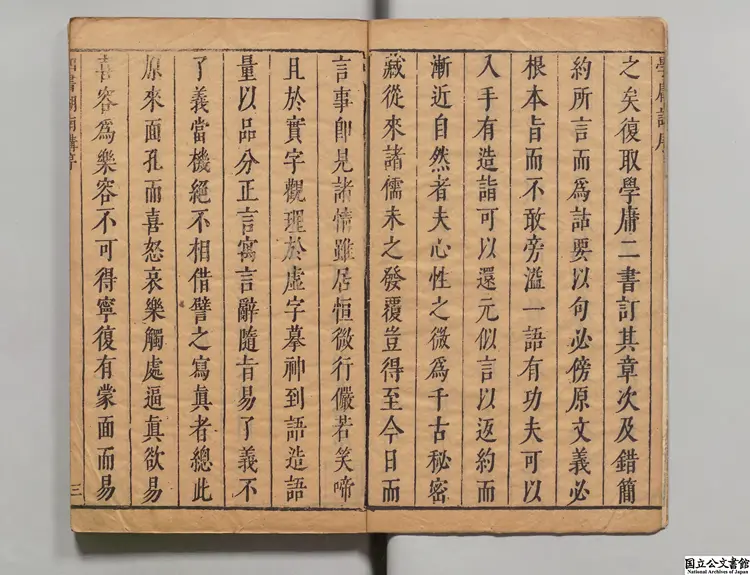 學庸詁序
之矣復取學庸二書訂其章次及錯簡
約所言而爲詁要以句必傍原文義必
根本旨而不敢旁溢一語有功夫可以
入手有造詣可以還元似言以返約而
漸近自然者夫心性之微爲千古秘密
藏從來諸儒未之發覆豈得至今日而
言事卽見諸情雖居恒微行儼若笑啼
且於實字觀理於虛字摹神到語造語
量以品分正言寓言辭隨旨易了義不
了義當機絕不相借譬之寫真者總此
原來面孔而喜怒哀樂觸處逼真欲易
喜容爲樂容不可得寧復有蒙面而易
四書湖南講序
三
国立公文書館
National Archives of Japan